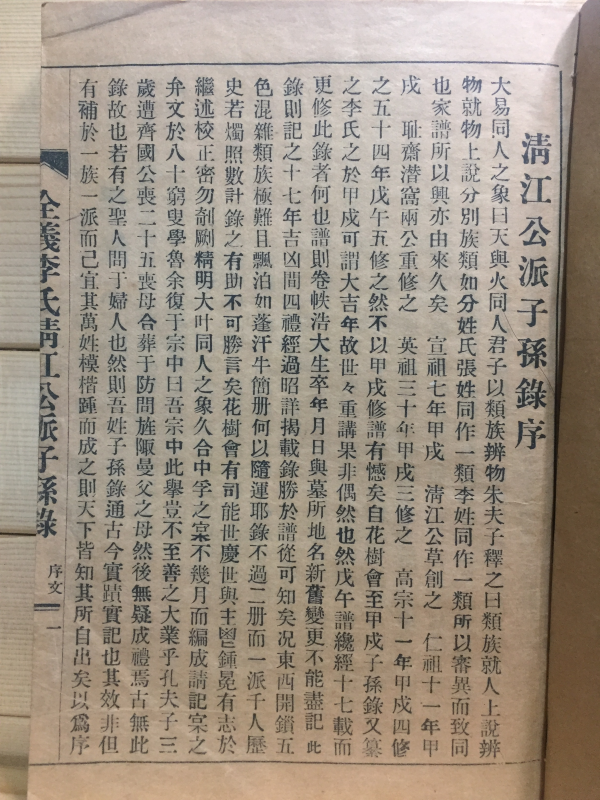 淸江公派子孫錄序
大易同人之象曰天與火同人君子以類族辨物朱夫子釋之曰類族就人上說辨
物就物上說分別族類如分姓氏張姓同作一類李姓同作一類所以審異而致同
也家譜所以興亦由來久矣　宣祖七年甲戌　淸江公草創之　仁祖十一年甲
戌　耻齋潛窩兩公重修之　英祖三十年甲戌三修之　高宗十一年甲戌四修
之五十四年戊午五修之然不以甲戌修譜有憾矣自花樹會至甲戌子孫錄又纂
之李氏之於甲戌可謂大吉年故世々重講果非偶然也然戊午譜纔經十七載而
更修此錄者何也譜則卷帙浩大生卒年月日與墓所地名新舊變更不能盡記此
錄則記之十七年吉凶間四禮經過昭詳揭載錄勝於譜從可知矣况東西開鎖五
色混雜類族極難且飄泊如蓬汗牛簡册何以隨運耶錄不過二册而一派千人歷
史若燭照數計錄之有助不可勝言矣花樹會有司能世慶世與主鬯鍾冕有志於
繼述校正密勿剞劂精明大叶同人之象久合中孚之宲不幾月而編成請記宲之
弁文於八十窮叟學魯余復于宗中曰吾宗中此擧豈不至善之大業乎孔夫子三
歲遭齊國公喪二十五喪母合葬于防問旌陬曼父之母然後無疑成禮焉古無此
錄故也若有之聖人問于婦人也然則吾姓子孫錄通古今實蹟實記也其效非但
有補於一族一派而已宜其萬姓模楷踵而成之則天下皆知其所自出矣以爲序
全義李氏淸江公派子孫錄　序文　一